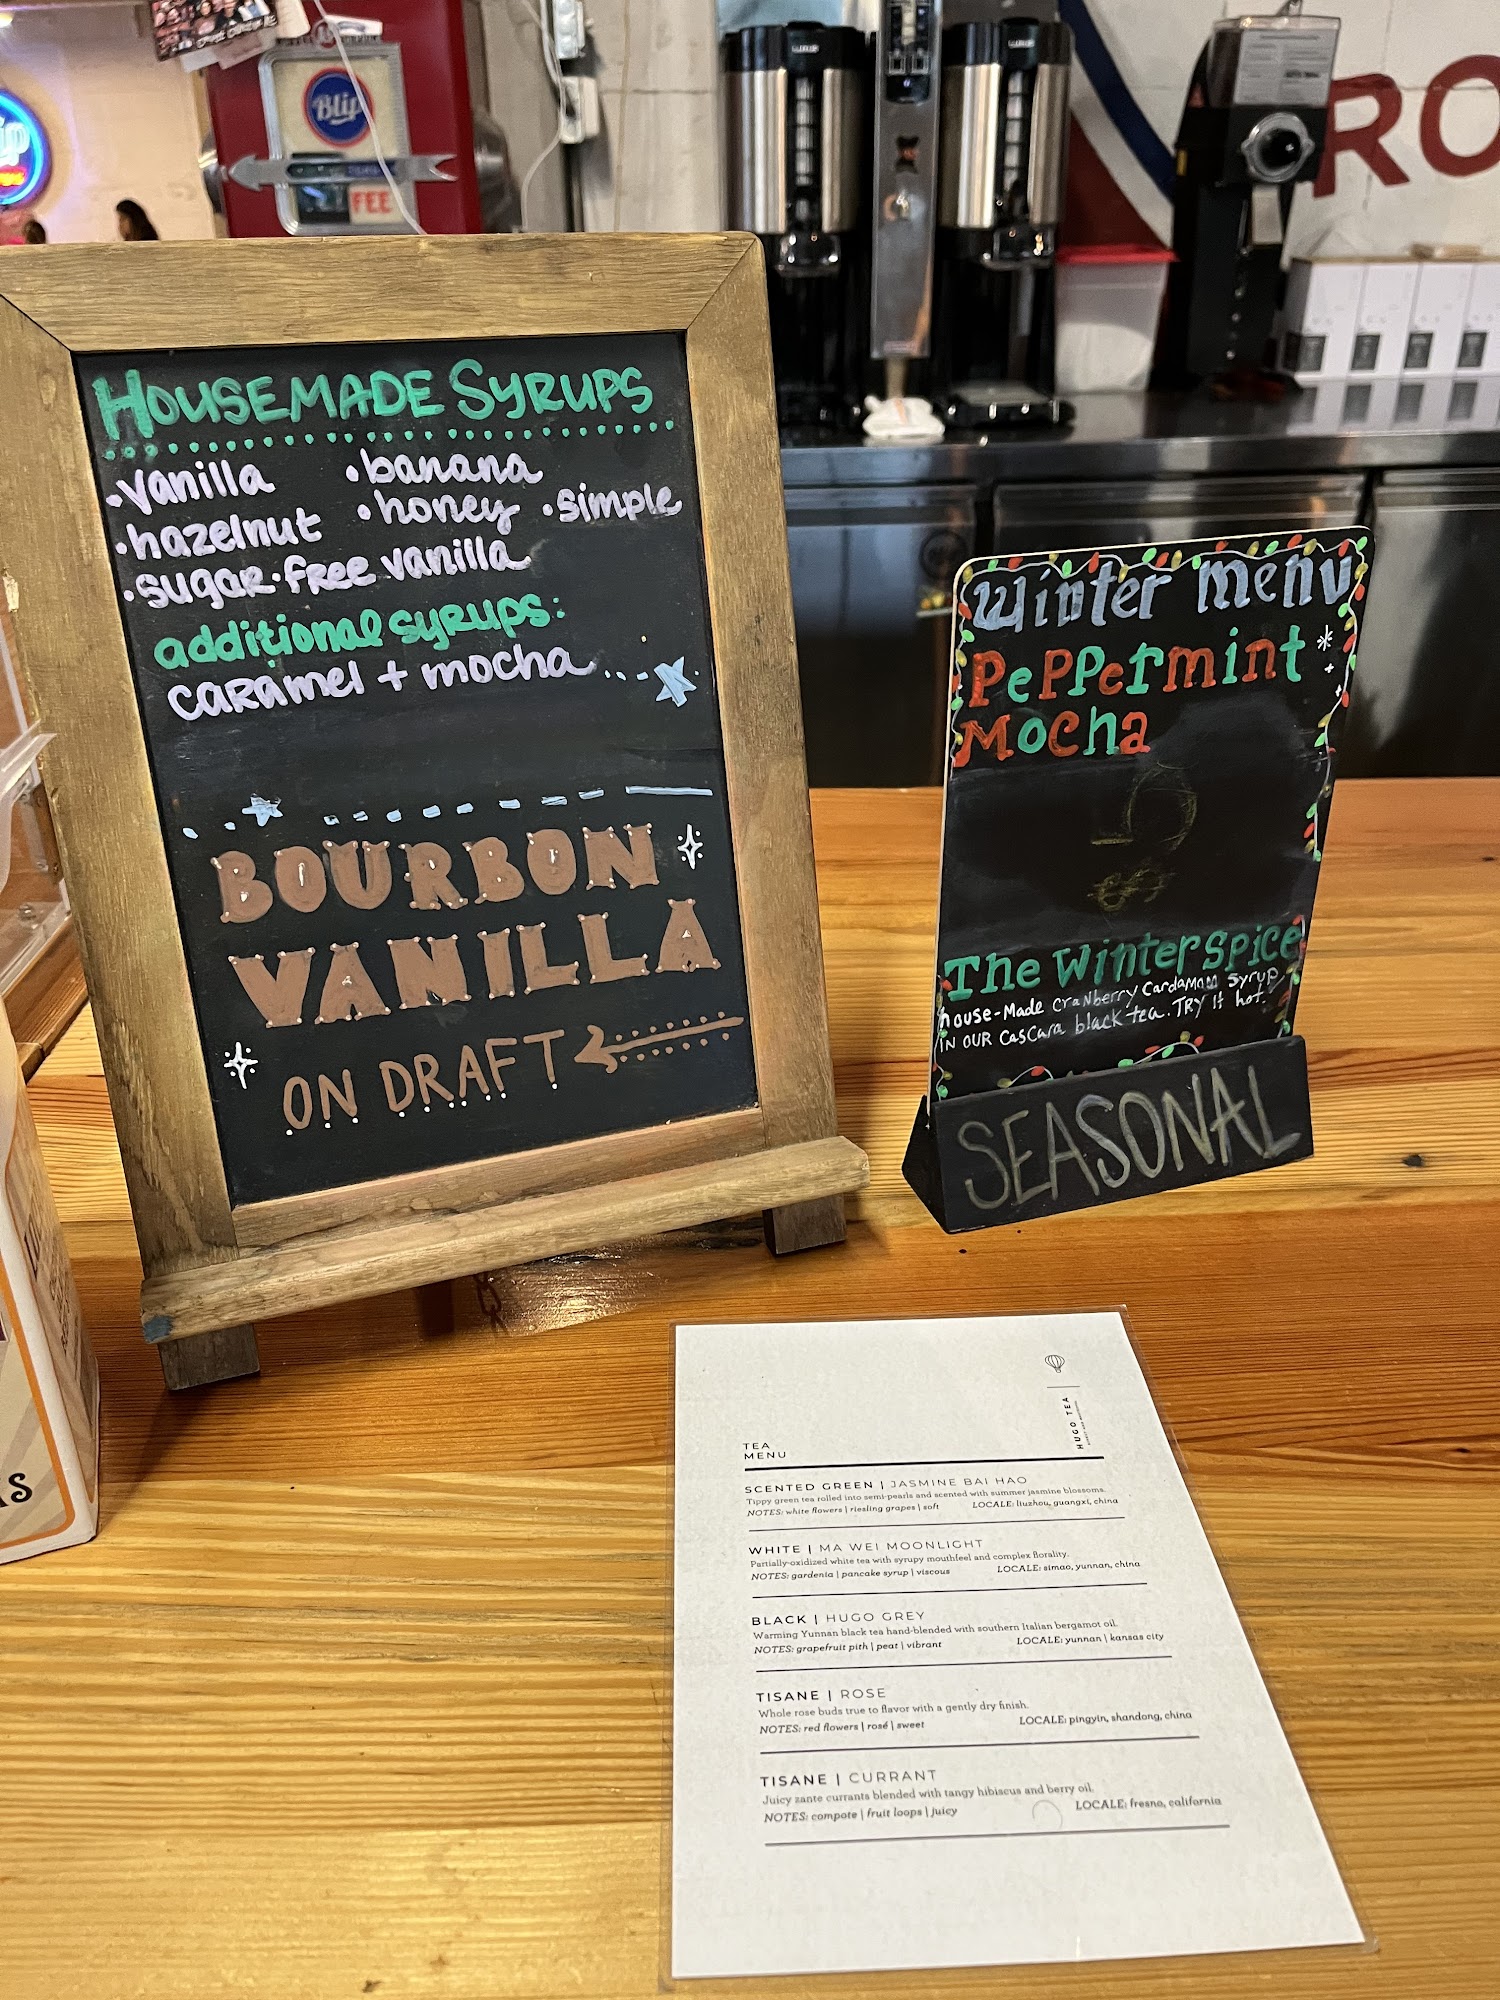 Blip
FEE
RO
HOUSEMADE SYRUPS
•vanilla •banana
•hazelnut •honey •simple
•sugar-free vanilla
additional syrups:
caramel + mocha
BOURBON
VANILLA
ON DRAFT
Winter Menu
Peppermint
Mocha
The Winter Spice
house-Made cranberry Cardamom Syrup
IN OUR Cascara black tea. TRY It hot.
SEASONAL
HUGO TEA
TEA
MENU
SCENTED GREEN | JASMINE BAI HAO
Tippy green tea rolled into semi-pearls and scented with summer jasmine blossoms.
NOTES: white flowers | riesling grapes | soft LOCALE: liuzhou, guangxi, china
WHITE | MA WEI MOONLIGHT
Partially-oxidized white tea with syrupy mouthfeel and complex florality.
NOTES: gardenia | pancake syrup | viscous LOCALE: simao, yunnan, china
BLACK | HUGO GREY
Warming Yunnan black tea hand-blended with southern Italian bergamot oil.
NOTES: grapefruit pith | peat | vibrant LOCALE: yunnan | kansas city
TISANE | ROSE
Whole rose buds true to flavor with a gently dry finish.
NOTES: red flowers | rosé | sweet LOCALE: pingyin, shandong, china
TISANE | CURRANT
Juicy zante currants blended with tangy hibiscus and berry oil.
NOTES: compote | fruit loops | juicy LOCALE: fresno, california